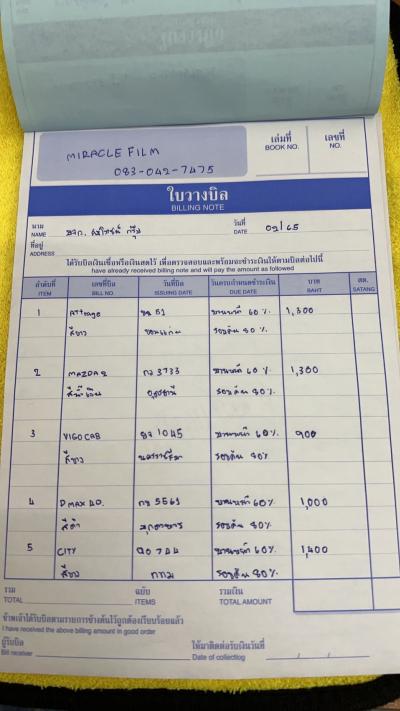 MIRACLE FILM
083-042-7475
เล่มที่ BOOK NO.
เลขที่ NO.
ใบวางบิล
BILLING NOTE
นาม NAME หจก.
วันที่ DATE 02/65
ที่อยู่ ADDRESS
ได้รับบิลเงินเชื่อหรือเงินสดไว้ เพื่อตรวจสอบและพร้อมจะชำระเงินให้ตามบิลต่อไปนี้
have already received billing note and will pay the amount as followed
ลำดับที่ เลขที่บิล วันที่บิล วันครบกำหนดชำระเงิน บาท สต.
ITEM BILL NO. ISSUING DATE DUE DATE BAHT SATANG
1 Attrage 51 บานหน้า 60 % 1,300
สีขาว ขอนแก่น รอบคัน 80 %
2 MAZDA 2 3733 บานหน้า 60 % 1,300
สีน้ำเงิน อุดรธานี รอบคัน 80%
3 VIGO CAB 1045 บานหน้า 60% 900
สีขาว นครราชสีมา รอบคัน 80%
4 D MAX 4D. 5561 บานหน้า 60% 1,000
สีดำ มุกดาหาร รอบคัน 80%
5 CITY บานหน้า 60% 1,400
กทม รอบคัน 80%
รวม ฉบับ รวมเงิน
TOTAL ITEMS TOTAL AMOUNT
ข้าพเจ้าได้รับบิลตามรายการข้างต้นไว้ถูกต้องเรียบร้อยแล้ว
I have received the above billing amount in good order
ผู้รับบิล ให้มาติดต่อรับเงินวันที่ / /
Bill receiver Date of collecting